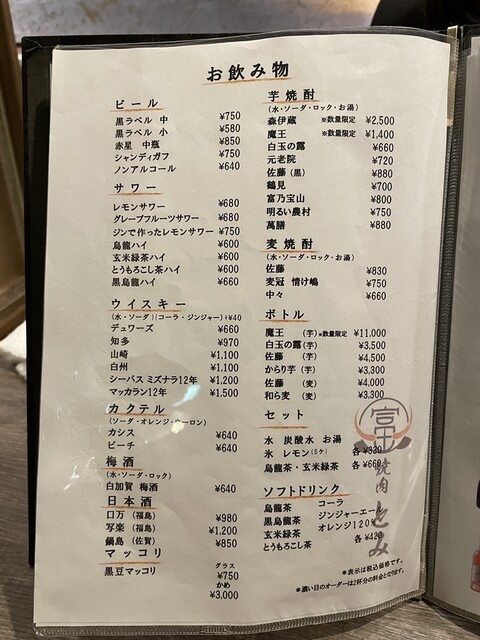 お飲み物
ビール
黒ラベル 中 ¥750
黒ラベル 小 ¥580
赤星 中瓶 ¥850
シャンディガフ ¥750
ノンアルコール ¥640
サワー
レモンサワー ¥680
グレープフルーツサワー ¥680
ジンで作ったレモンサワー ¥750
烏龍ハイ ¥600
玄米緑茶ハイ ¥600
とうもろこし茶ハイ ¥600
黒烏龍ハイ ¥600
ウイスキー
(水・ソーダ)(コーラ・ジンジャー)+¥40
デュワーズ ¥660
知多 ¥970
山崎 ¥1,100
白州 ¥1,100
シーバス ミズナラ12年 ¥1,200
マッカラン12年 ¥1,500
カクテル
(ソーダ・オレンジ・ウーロン)
カシス ¥640
ピーチ ¥640
梅酒
(水・ソーダ・ロック)
白加賀 梅酒 ¥640
日本酒
口万(福島) ¥980
写楽(福島) ¥1,200
鍋島(佐賀) ¥850
マッコリ
黒豆マッコリ グラス ¥750
かめ ¥3,000
芋焼酎
(水・ソーダ・ロック・お湯)
森伊蔵 ※数量限定 ¥2,500
魔王 ※数量限定 ¥1,400
白玉の露 ¥660
元老院 ¥720
佐藤(黒) ¥880
鶴見 ¥700
富乃宝山 ¥800
明るい農村 ¥750
萬膳 ¥880
麦焼酎
(水・ソーダ・ロック・お湯)
佐藤 ¥830
麦冠 情け嶋 ¥750
中々 ¥660
ボトル
魔王 (芋) ※数量限定 ¥11,000
白玉の露 (芋) ¥3,500
佐藤 (芋) ¥4,500
からり芋 (芋) ¥3,300
佐藤 (麦) ¥4,000
和ら麦 (麦) ¥3,300
セット
水 炭酸水 お湯
氷 レモン(5ケ) 各 ¥330
烏龍茶・玄米緑茶 各 ¥660
ソフトドリンク
烏龍茶 コーラ
黒烏龍茶 ジンジャーエール
玄米緑茶 オレンジ120%
とうもろこし茶 各 ¥420
*表示は税込価格です。
*濃い目のオーダーは2杯分の料金となります。
富
焼肉 とみ